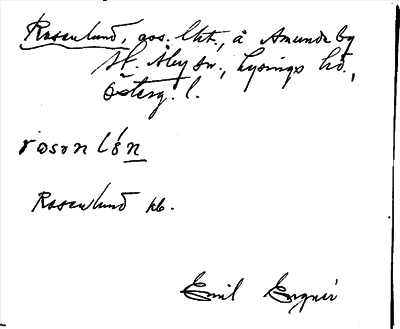 Rosenlund, avs. lht., å Amundeby
St. Åby sn., Lysings hd.,
Österg. l.
rosonlẃn
Rosenlund kb.
Emil Engner